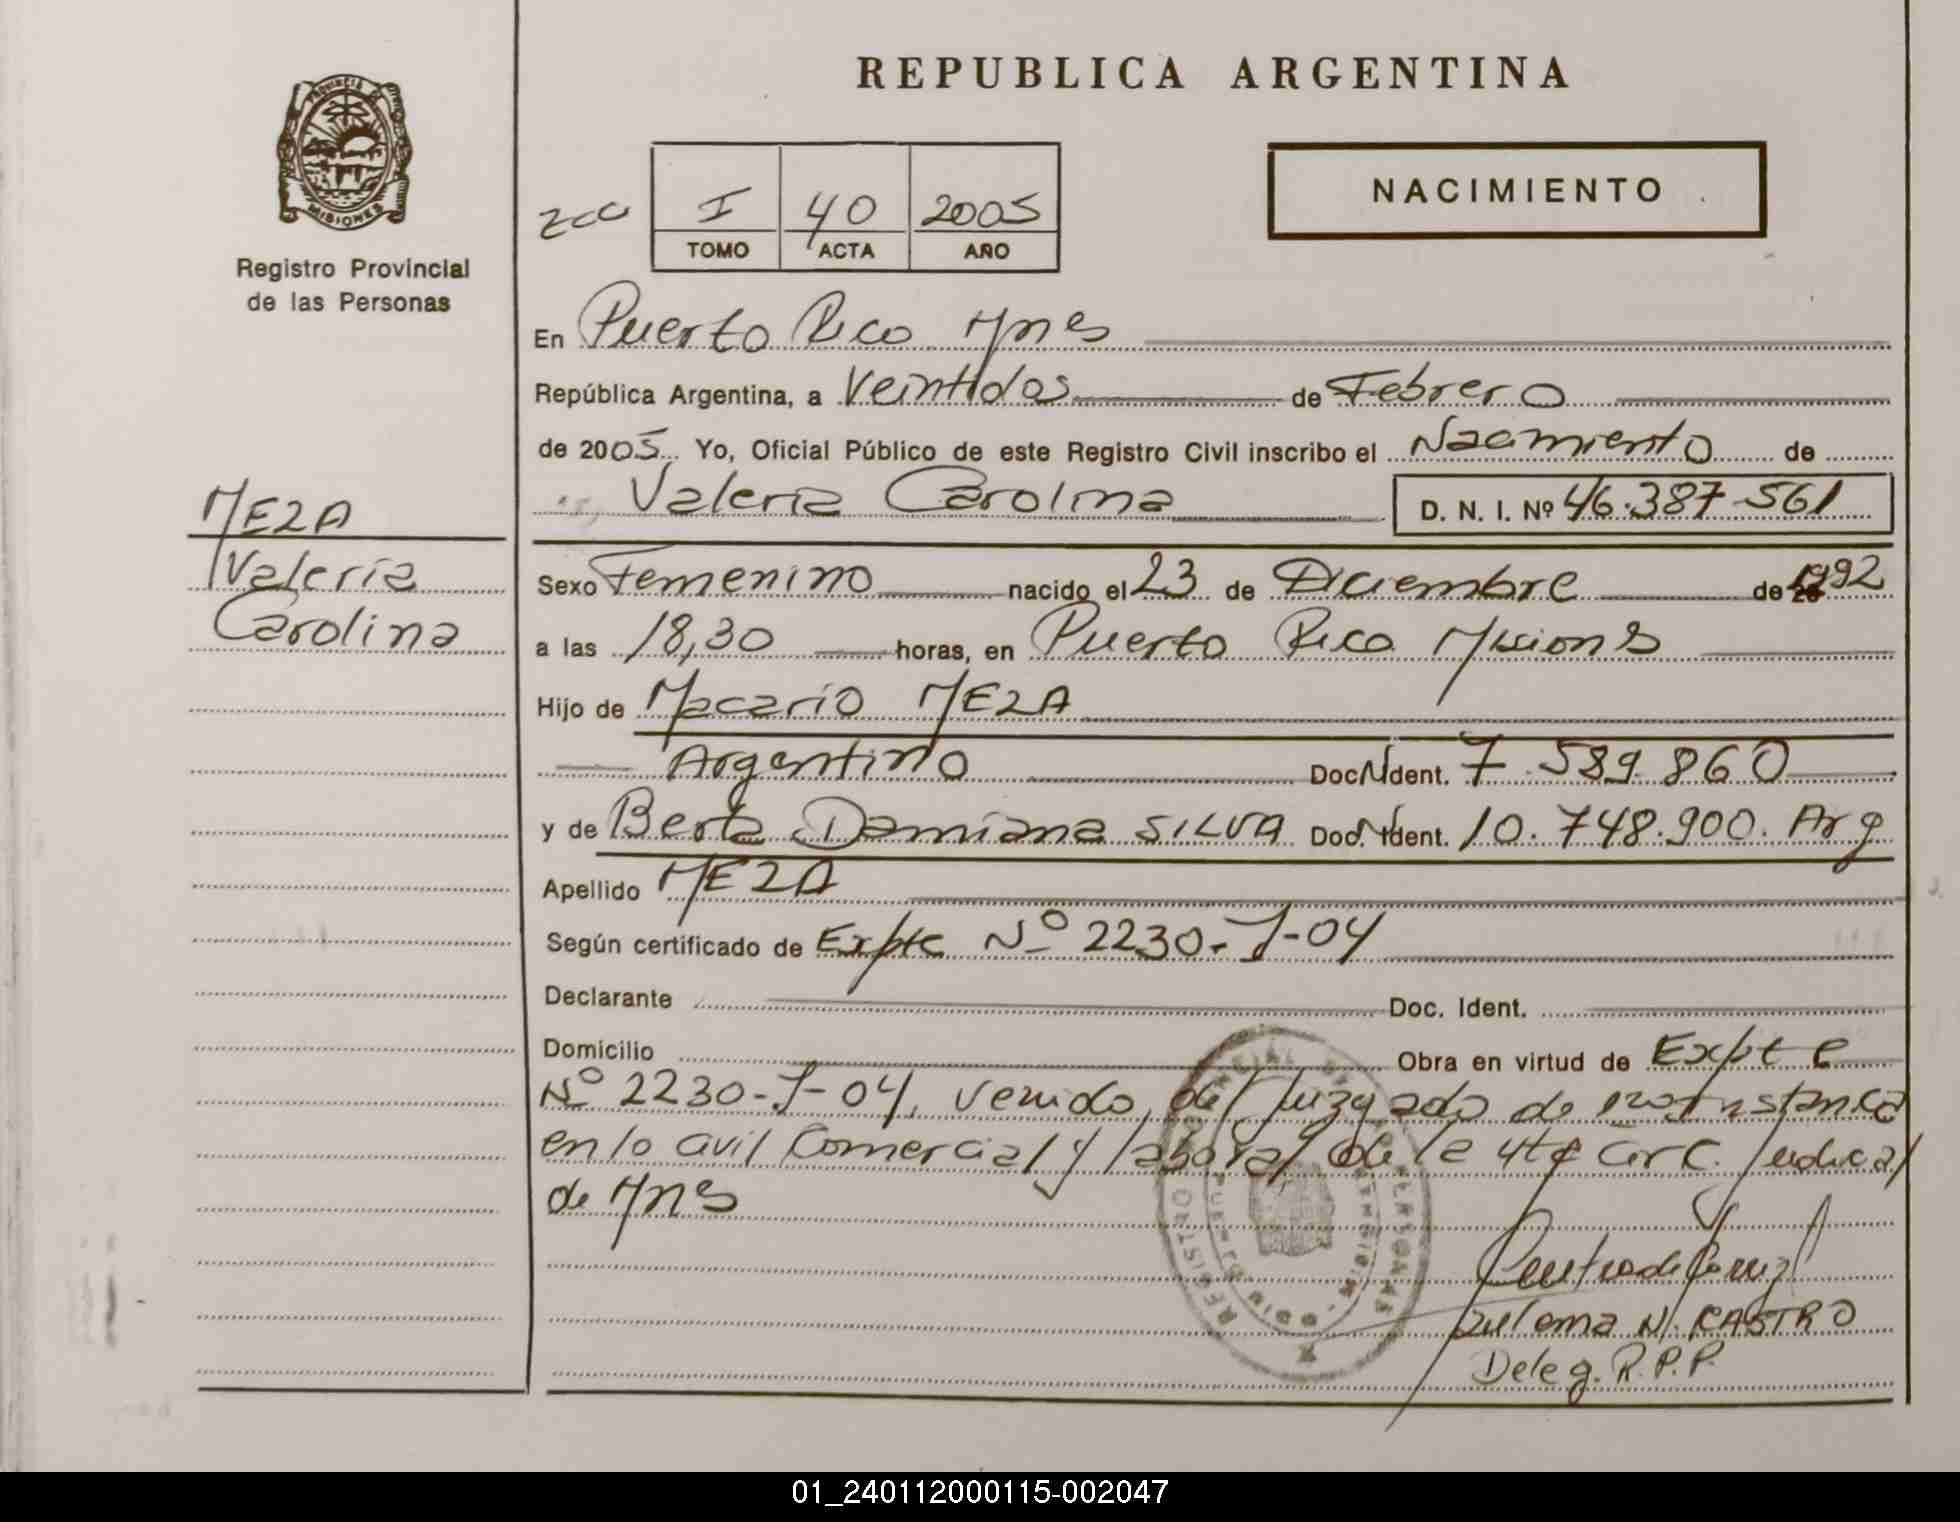 REPUBLICA ARGENTINA
PROVINCIA DE
MISIONES
Registro Provincial
de las Personas
NACIMIENTO
I 40 2005
TOMO ACTA AÑO
En Puerto Rico Mnes
República Argentina, a Veintidos de Febrero
de 2005 Yo, Oficial Público de este Registro Civil inscribo el Nacimiento de
Valeria Carolina D. N. I. Nº 46.387.561
MEZA
Valeria
Carolina
Sexo Femenino nacido el 23 de Diciembre de 1992
a las 18,30 horas, en Puerto Rico Misions
Hijo de Macario MEZA
Argentino Doc. Ident. 7.589.860
y de Berta Damiana SILVA Doc. Ident. 10.748.900. Arg
Apellido MEZA
Según certificado de Expte Nº 2230-J-04
Declarante Doc. Ident.
Domicilio Obra en virtud de Expte
Nº 2230-J-04, venido del Juzgado de Instancia
en lo civil Comercial y laboral de la 4ta Circ. Judicial
de Mnes
REGISTRO PERSONAS
Zulema N. CASTRO
Deleg. R.P.P.
01_240112000115-002047